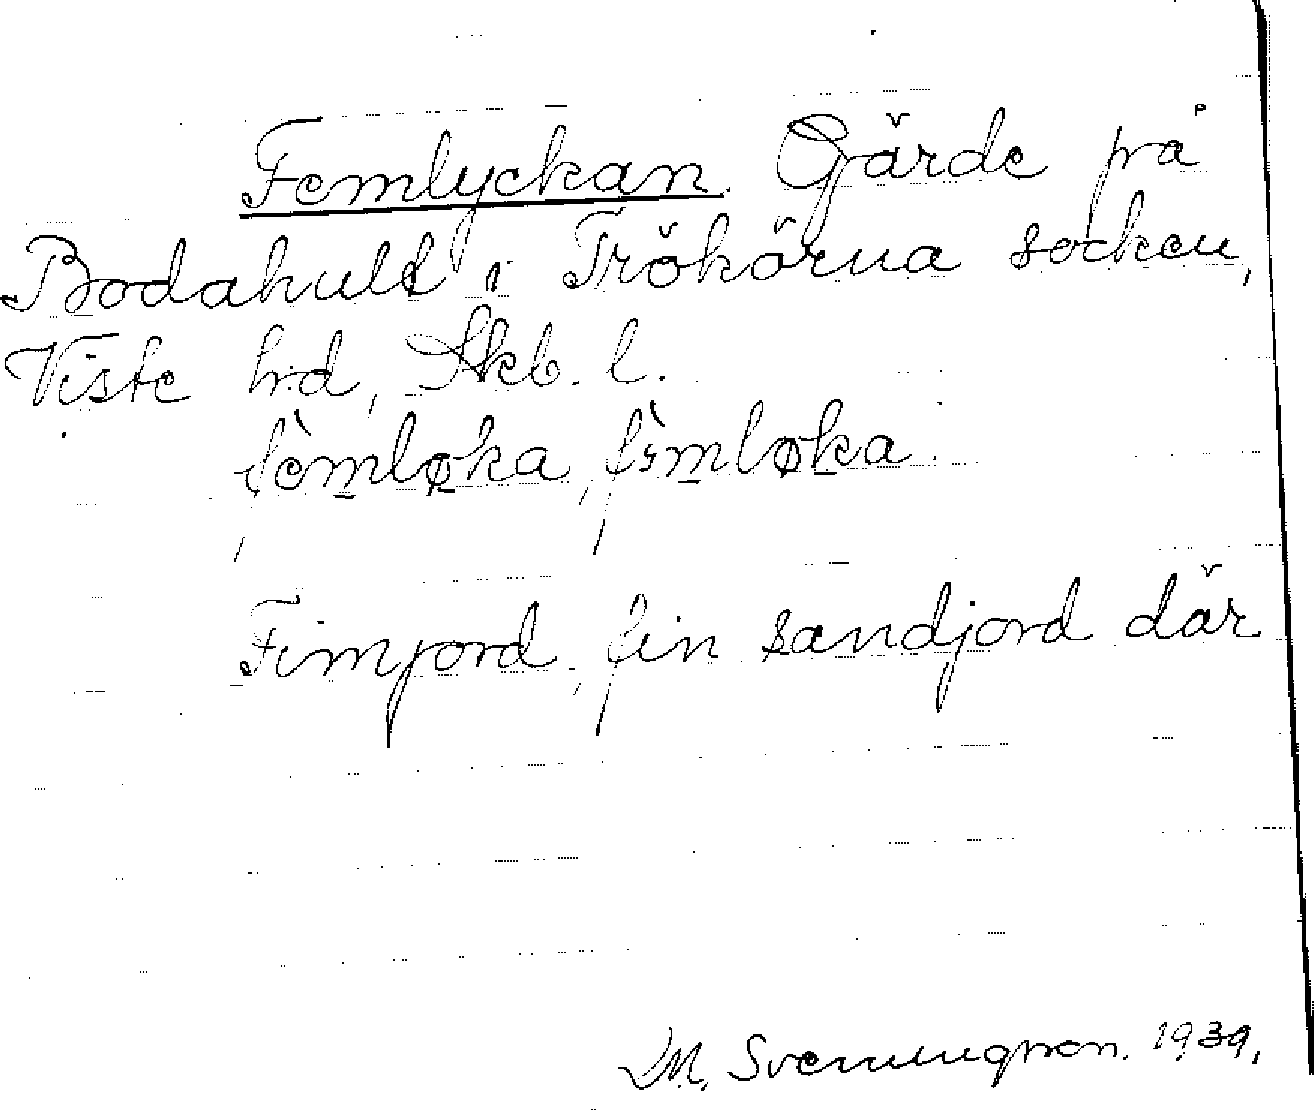 Femlyckan. Gärde på
Bodahult i Trökörna socken,
Viste hrd, Skb. l.
fèmløka, fìmløka
Fimjord, fin sandjord där
M. Svenungsson. 1939.